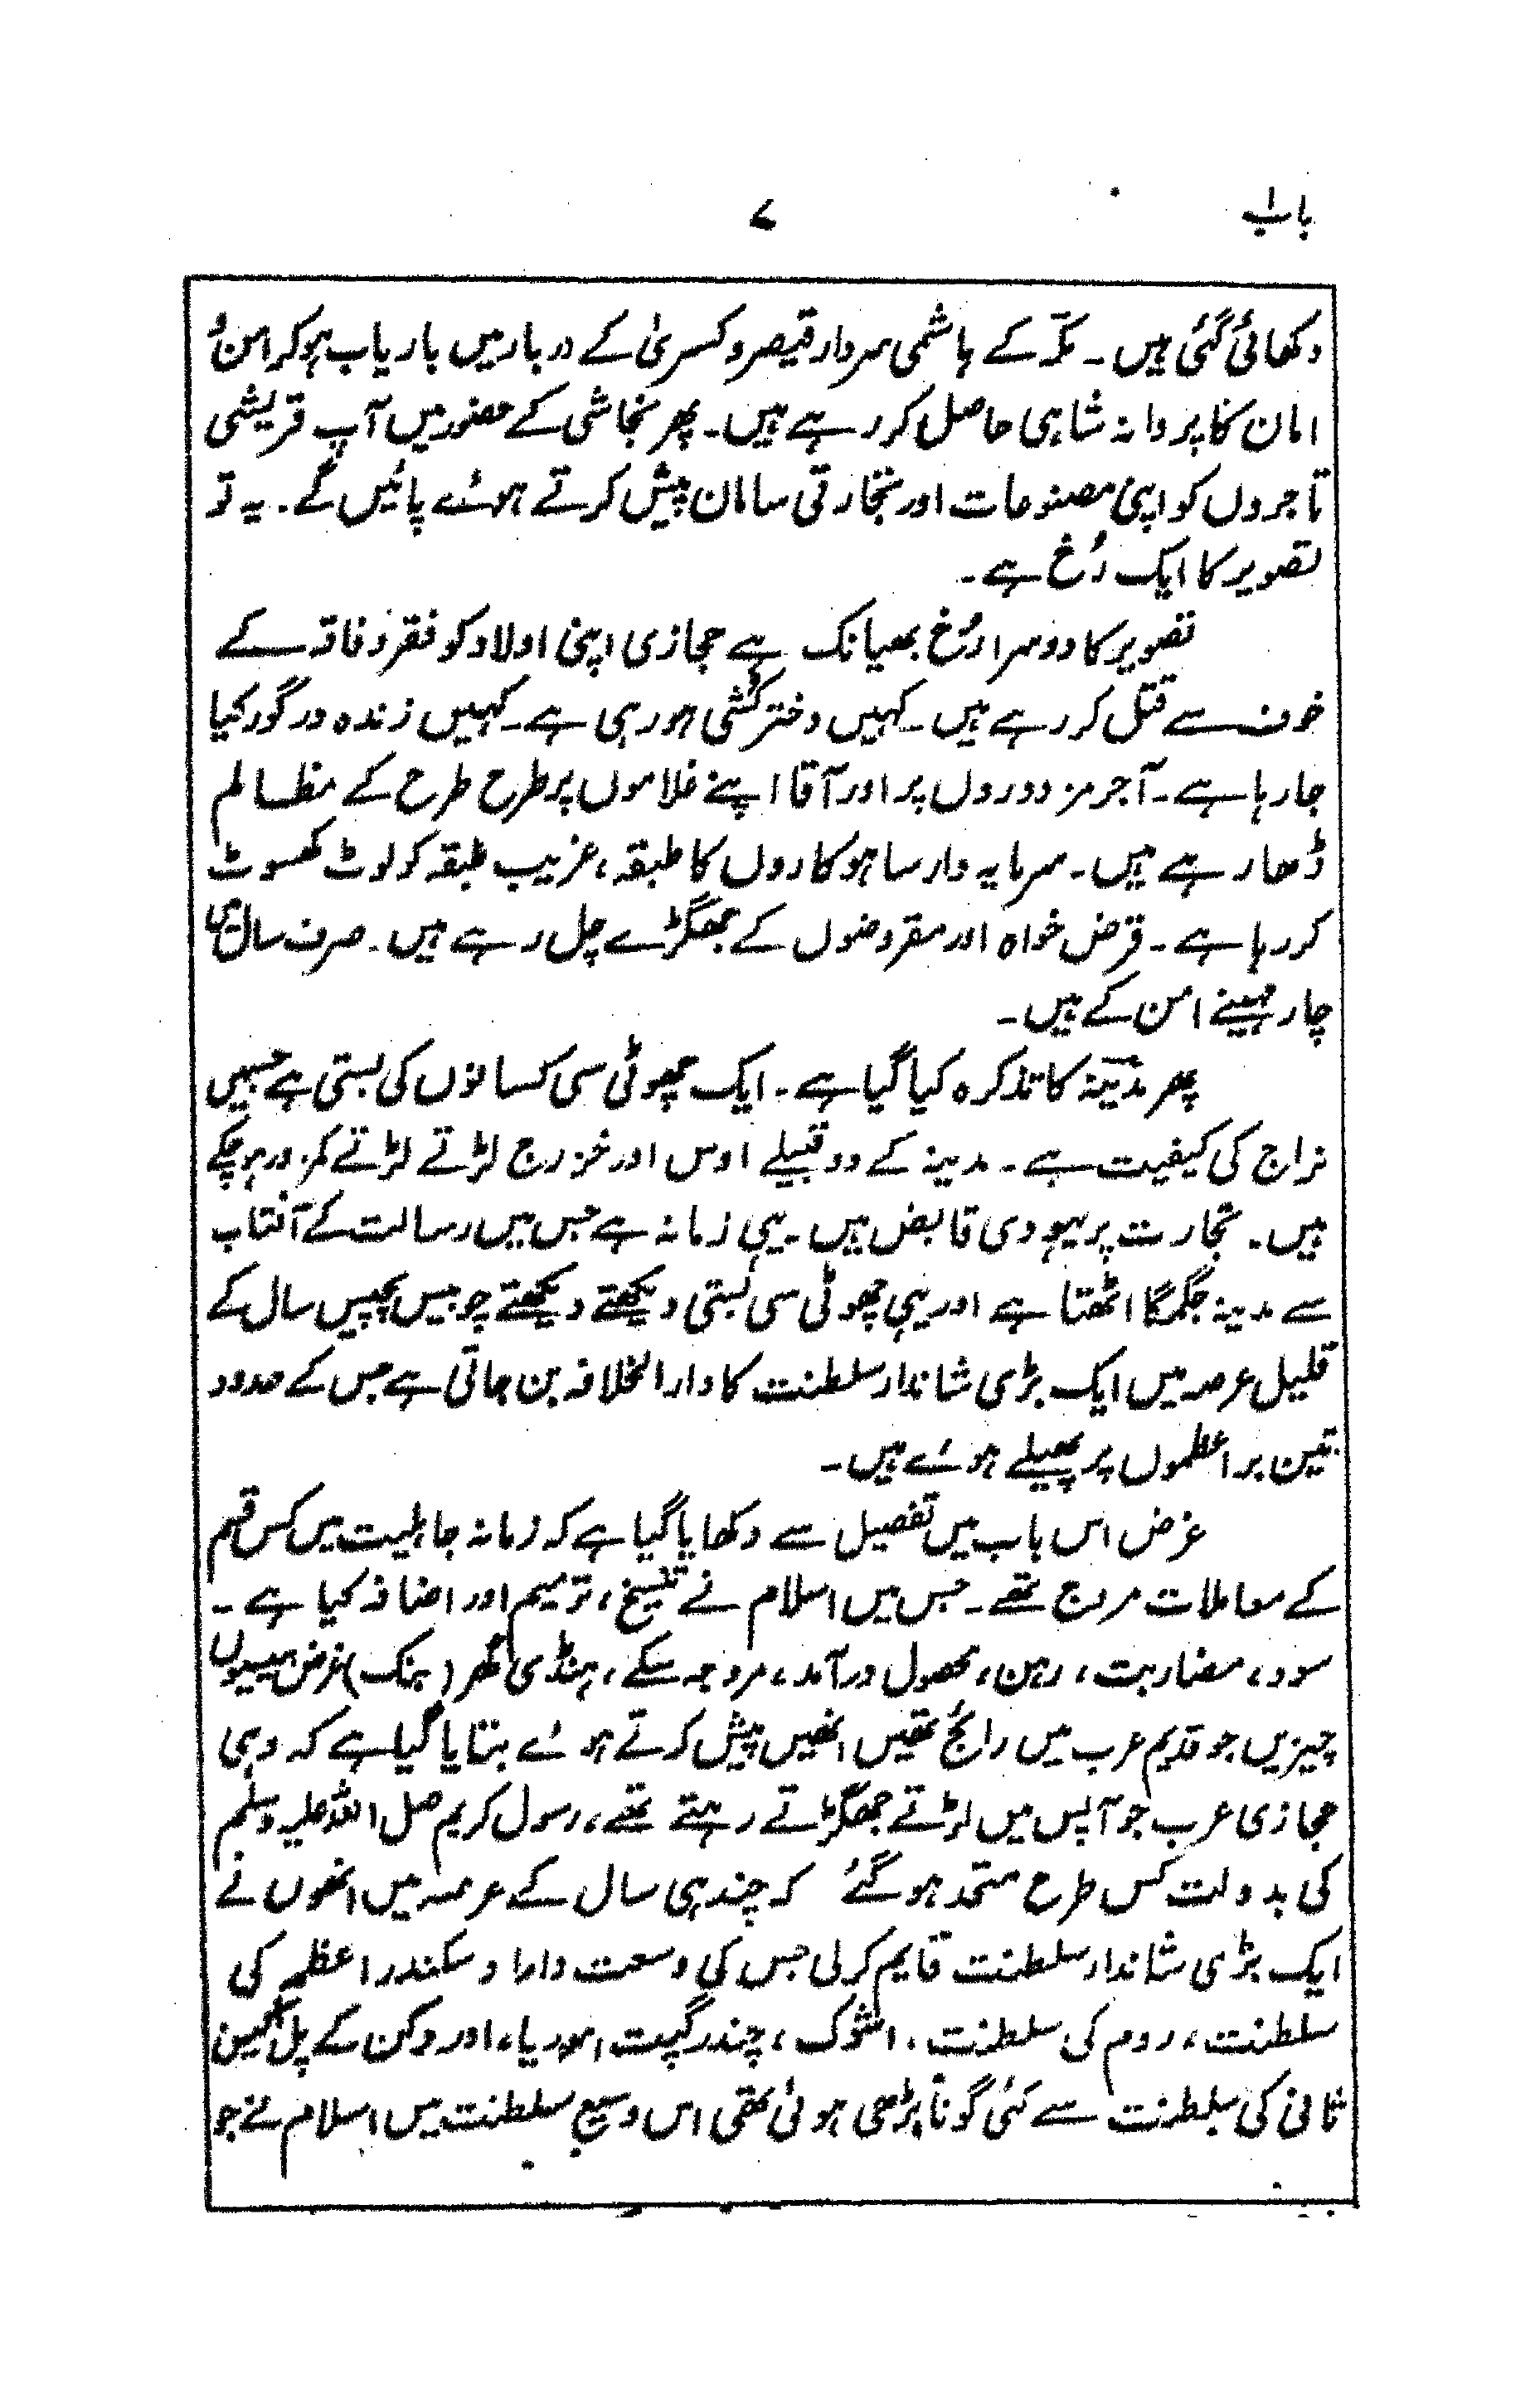 باب ۱ ۷
دکھائی گئی ہیں۔ مکہ کے ہاشمی سردار قیصر و کسریٰ کے دربار میں باریاب ہوکر امن و
امان کا پروانہ شاہی حاصل کر رہے ہیں۔ پھر نجاشی کے حضور میں آپ قریشی
تاجروں کو اپنی مصنوعات اور تجارتی سامان پیش کرتے ہوئے پائیں گے۔ یہ تو
تصویر کا ایک رُخ ہے۔
تصویر کا دوسرا رُخ بھیانک ہے حجازی اپنی اولاد کو فقر و فاقہ کے
خوف سے قتل کر رہے ہیں۔ کہیں دختر کُشی ہو رہی ہے۔ کہیں زندہ درگور کیا
جا رہا ہے۔ آجر مزدوروں پر اور آقا اپنے غلاموں پر طرح طرح کے مظالم
ڈھا رہے ہیں۔ سرمایہ دار ساہوکاروں کا طبقہ، غریب طبقہ کو لوٹ کھسوٹ
کر رہا ہے۔ قرض خواہ اور مقروضوں کے جھگڑے چل رہے ہیں۔ صرف سال میں
چار مہینے امن کے ہیں۔
پھر مدینہ کا تذکرہ کیا گیا ہے۔ ایک چھوٹی سی کسانوں کی بستی ہے جسمیں
نراج کی کیفیت ہے۔ مدینہ کے دو قبیلے اوس اور خزرج لڑتے لڑتے کمزور ہوچکے
ہیں۔ تجارت پر یہودی قابض ہیں۔ یہی زمانہ ہے جس میں رسالت کے آفتاب
سے مدینہ جگمگا اٹھتا ہے اور یہی چھوٹی سی بستی دیکھتے دیکھتے چوبیس پچیس سال کے
قلیل عرصہ میں ایک بڑی شاندار سلطنت کا دارالخلافہ بن جاتی ہے جس کے حدود
تین براعظموں پر پھیلے ہوئے ہیں۔
غرض اس باب میں تفصیل سے دکھایا گیا ہے کہ زمانہ جاہلیت میں کس قسم
کے معاملات مروج تھے۔ جس میں اسلام نے تنسیخ، ترمیم اور اضافہ کیا ہے۔
سود، مضاربت، رہن، محصول درآمد، مروجہ سکے، ہنڈی گھر (بنک) غرض بیسیوں
چیزیں جو قدیم عرب میں رائج تھیں انھیں پیش کرتے ہوئے بتایا گیا ہے کہ وہی
حجازی عرب جو آپس میں لڑتے جھگڑتے رہتے تھے، رسول کریم صل اللہ علیہ وسلم
کی بدولت کس طرح متحد ہوگئے کہ چند ہی سال کے عرصہ میں انھوں نے
ایک بڑی شاندار سلطنت قایم کرلی جس کی وسعت دارا و سکندر اعظم کی
سلطنت، روم کی سلطنت، اشوک، چندر گپت موریا، اور دکن کے پل کیسن
ثانی کی سلطنت سے کئی گونا بڑھی ہوئی تھی اس وسیع سلطنت میں اسلام نے جو